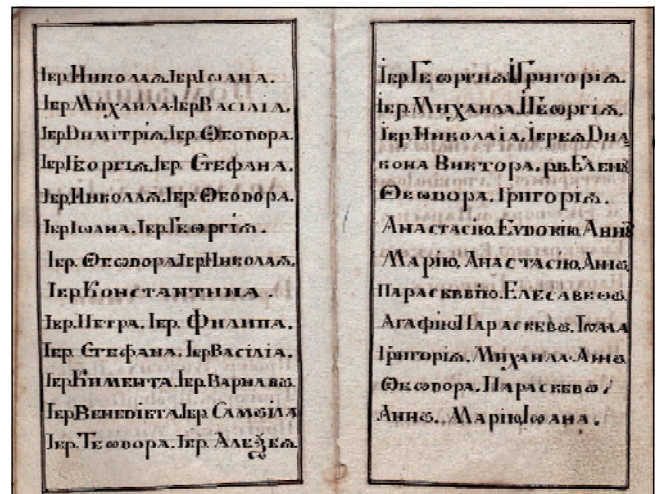 Іер. Николаѧ. Іер Іѡана.
Іер. Михаила. Іер Васілїа.
Іер Димитріѧ. Іер. Ѳеодора.
Іер Георгїѧ. Іер. Стефана.
Іер. Николаѧ. Іер. Ѳеодора.
Іер Іѡана. Іер. Геѡргїѧ.
Іер. Ѳеѡдора. Іер Николаѧ.
Іер Константина.
Іер. Петра. Іер. Филипа.
Іер. Стефана. Іер Васілїа.
Іер Кимента. Іер. Варнавѡ
Іер Венедіета. Іер. Самѡіла
Іер. Теѡдора. Іер. Алеѯѣѧ.
Іер Геѡргиѧ. Григорїѧ.
Іер. Михаила. Геѡргїѧ.
Іер. Николаіа. Іереѧ Диа
кона Виктора. рв. Еленꙋ
Ѳеѡдора. Григорїѧ.
Анастасїю. Еѵдокїю. Аннꙋ
Марїю. Анастасїю. Аннѡ
Параскевїю. Елесавеѳѡ
Агафїю. Параскевѡ. Іѡана
Григорїѧ. Михаила. Аннѡ
Ѳеѡдора. Параскевѡ
Аннѡ. Марїю. Іѡана.